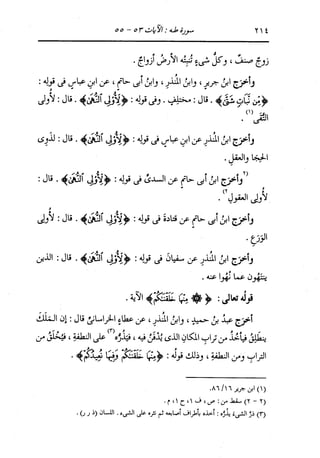 ٢١٤
سورة طه : الآيات ٥٣ - ٥٥
زوجُ صنفٌ ، وكلُّ شىءٍ تُنبِتُه الأرضُ أزواجٌ .
وأخرَج ابنُ جريرٍ ، وابنُ المنذرِ ، وابنُ أبى حاتمٍ ، عن ابنِ عباسٍ فى قولِه :
﴿مِّن نَّبَاتٍ شَتَّىٰ﴾ . قال : مختلِفٍ . وفى قولِه : ﴿لِّأُوْلِى ٱلنُّهَىٰ﴾ . قال : لأُولى
التُّقَى(١) .
وأخرَج ابنُ المنذرِ عن ابنِ عباسٍ فى قولِه : ﴿لِّأُوْلِى ٱلنُّهَىٰ﴾ . قال : لذوِى
الحِجا والعقلِ .
(٢)وأخرَج ابنُ أبى حاتمٍ عن السدىِّ فى قولِه : ﴿لِّأُوْلِى ٱلنُّهَىٰ﴾ . قال :
لأُولى العقولِ(٢) .
وأخرَج ابنُ أبى حاتمٍ عن قتادةَ فى قولِه : ﴿لِّأُوْلِى ٱلنُّهَىٰ﴾ . قال : لأُولى
الوَرَعِ .
وأخرَج ابنُ المنذرِ عن سفيانَ فى قولِه : ﴿لِّأُوْلِى ٱلنُّهَىٰ﴾ . قال : الذين
يَنتَهُون عما نُهوا عنه .
قولُه تعالى : ﴿۞ مِنْهَا خَلَقْنَٰكُمْ﴾ الآية .
أخرَج عبدُ بنُ حميدٍ ، وابنُ المنذرِ ، عن عطاءٍ الخراسانىِّ قال : إن المَلَكَ
ينطلِقُ فيأخذُ من ترابِ المكانِ الذى يُدفَنُ فيه ، فيَذُرُّه(٣) على النطفةِ ، فيُخلَقُ من
الترابِ ومن النطفةِ ، وذلك قولُه : ﴿مِنْهَا خَلَقْنَٰكُمْ وَفِيهَا نُعِيدُكُمْ﴾ .
(١) ابن جرير ١٦/ ٨٦.
(٢ - ٢) سقط من : ص ، ف ١، ح ١، م .
(٣) ذرَّ الشىءَ يذُرُّه : أخذه بأطراف أصابعه ثم نثره على الشىء . اللسان (ذ ر ر) .